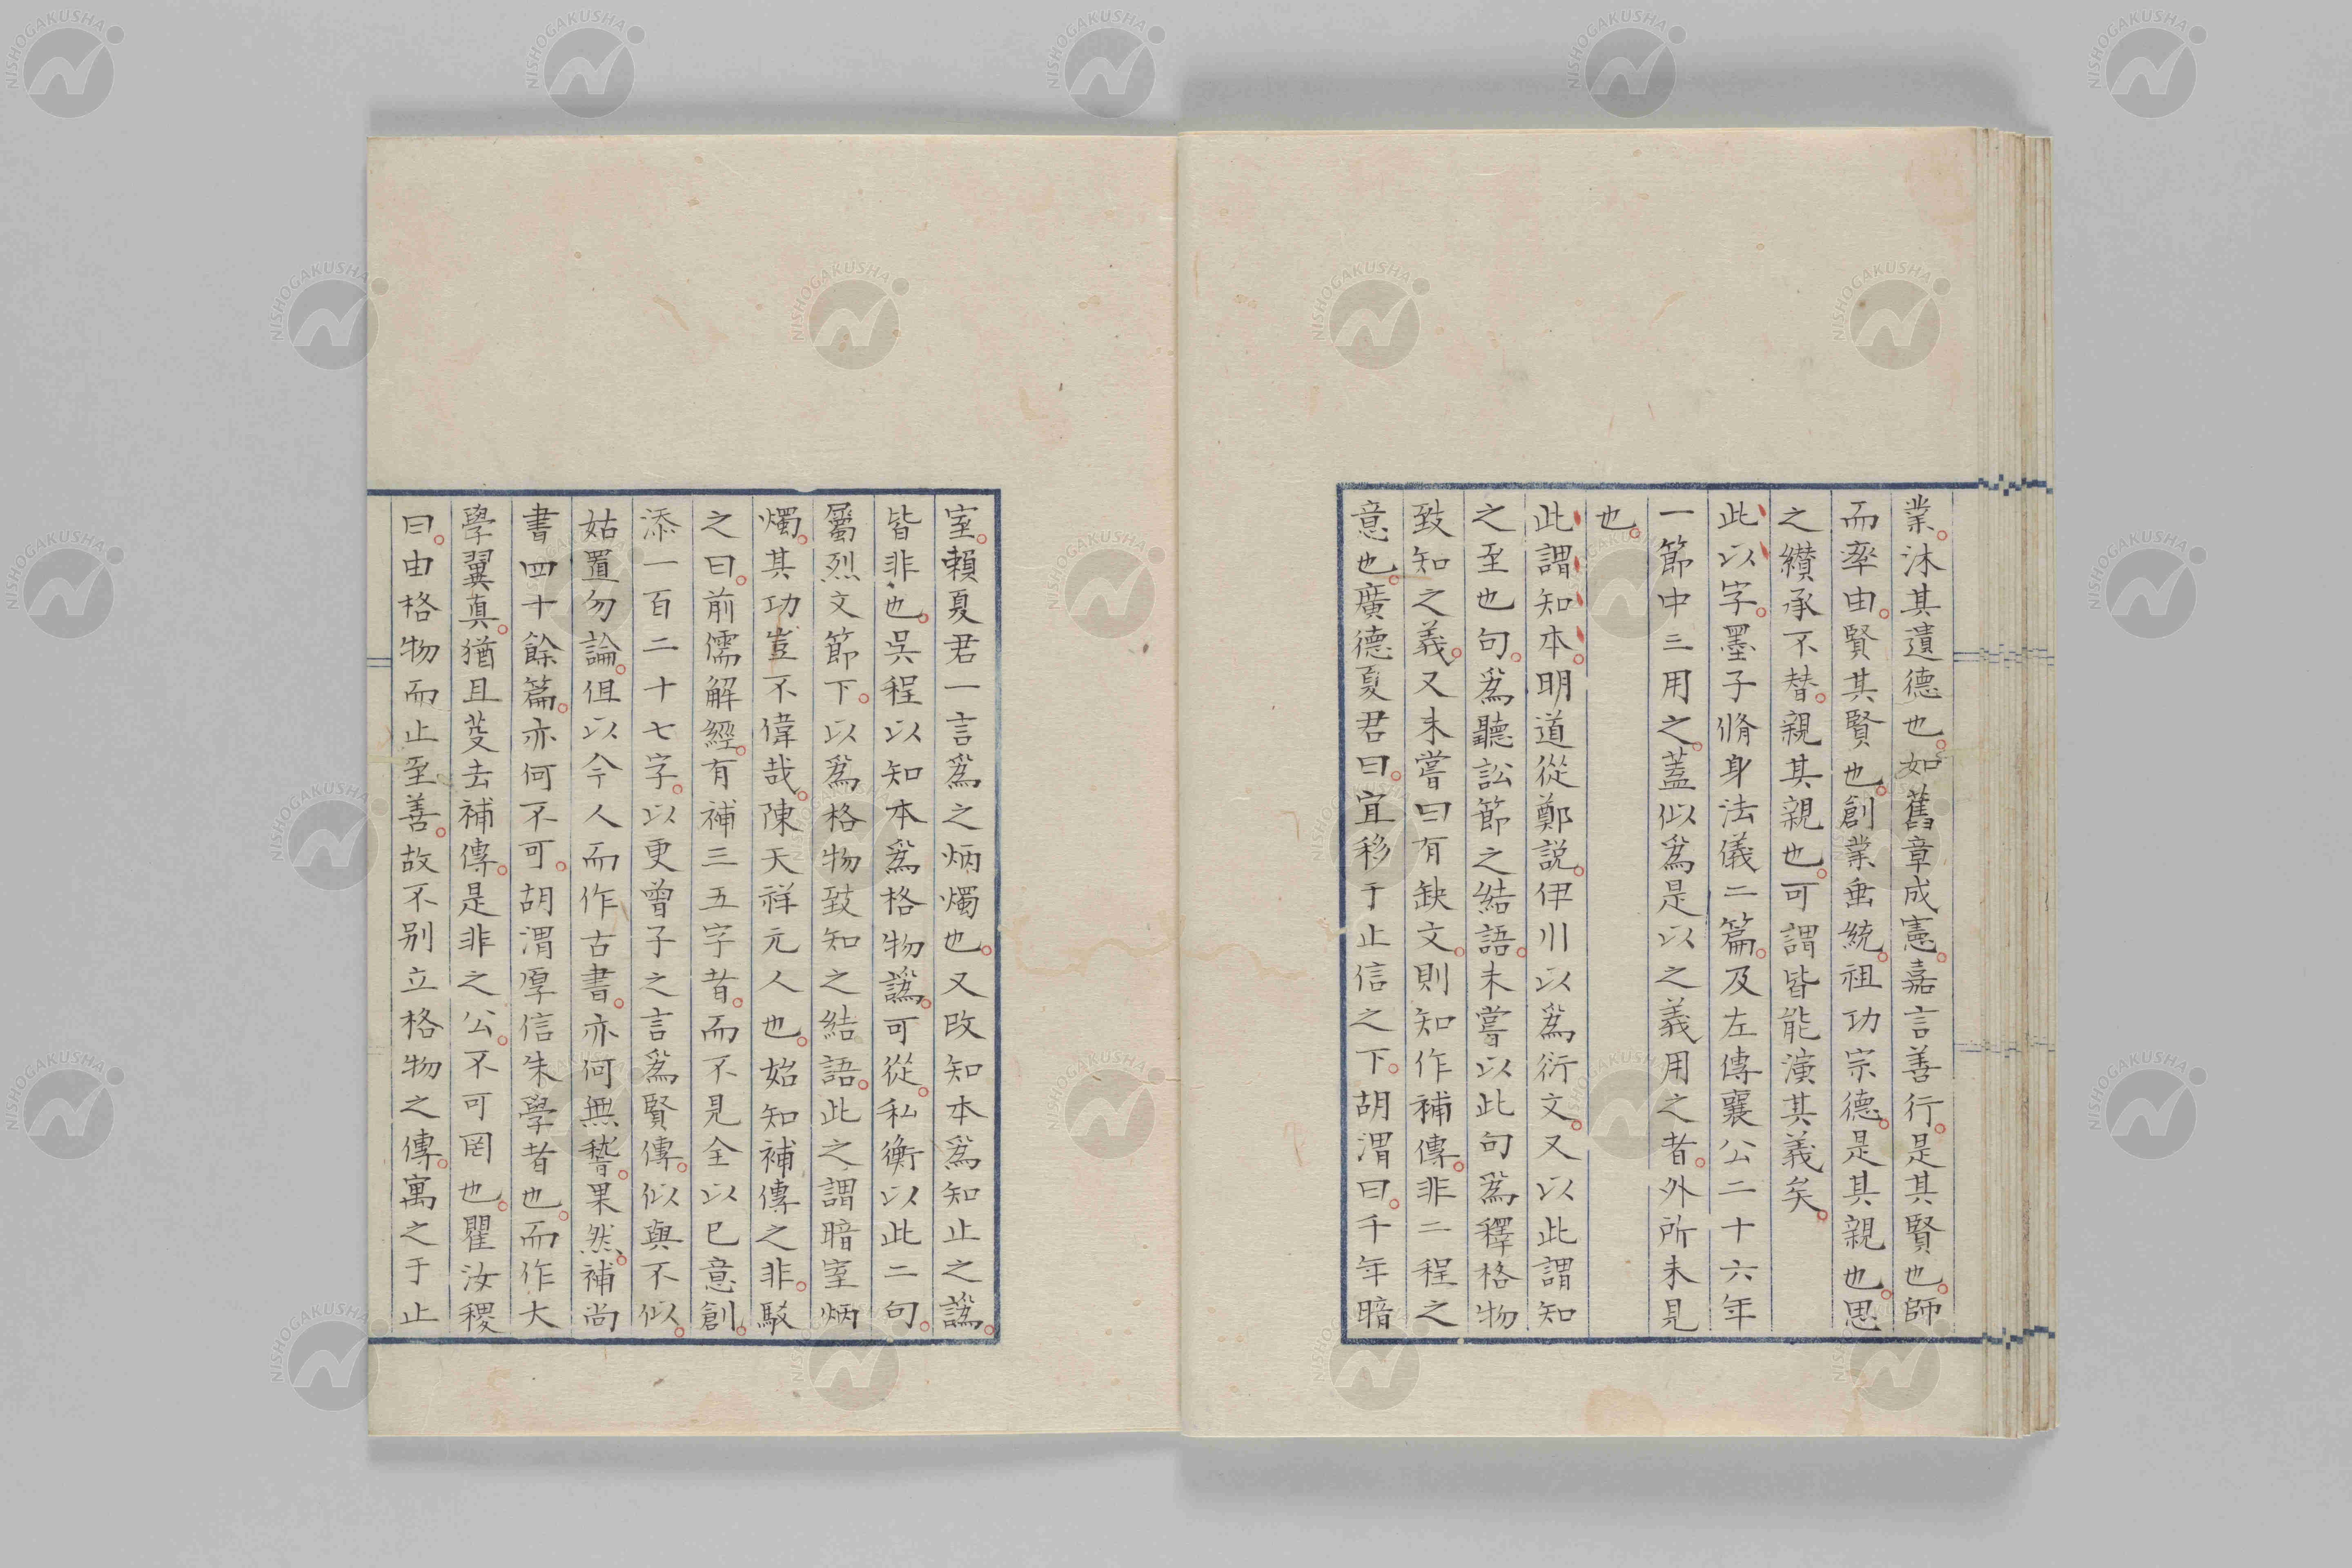 業。沐其遺德也。如舊章成憲。嘉言善行。是其賢也。師
而率由。賢其賢也。創業垂統。祖功宗德。是其親也。思
之纉承不替。親其親也。可謂皆能演其義矣。
此以字。墨子脩身法儀二篇。及左傳襄公二十六年
一節中三用之。蓋似爲是以之義用之者。外所未見
也。
此謂知本。明道從鄭説。伊川以爲衍文。又以此謂知
之至也句。爲聽訟節之結語。未嘗以此句爲釋格物
致知之義。又未嘗曰有缺文。則知作補傳。非二程之
意也。廣德夏君曰。宜移于止信之下。胡渭曰。千年暗
室。賴夏君一言爲之炳燭也。又改知本爲知止之譌。
皆非也。吳程以知本爲格物譌。可從。私衡以此二句。
屬烈文節下。以爲格物致知之結語。此之謂暗室炳
燭。其功豈不偉哉。陳天祥元人也。始知補傳之非。駁
之曰。前儒解經。有補三五字者。而不見全以已意創。
添一百二十七字。以更曾子之言爲賢傳。似與不似。
姑置勿論。但以今人而作古書。亦何無警。果然。補尚
書四十餘篇。亦何不可。胡渭厚信朱學者也。而作大
學翼真。猶且芟去補傳。是非之公。不可罔也。瞿汝稷
曰。由格物而止至善。故不別立格物之傳。寓之于止
NISHOGAKUSHA